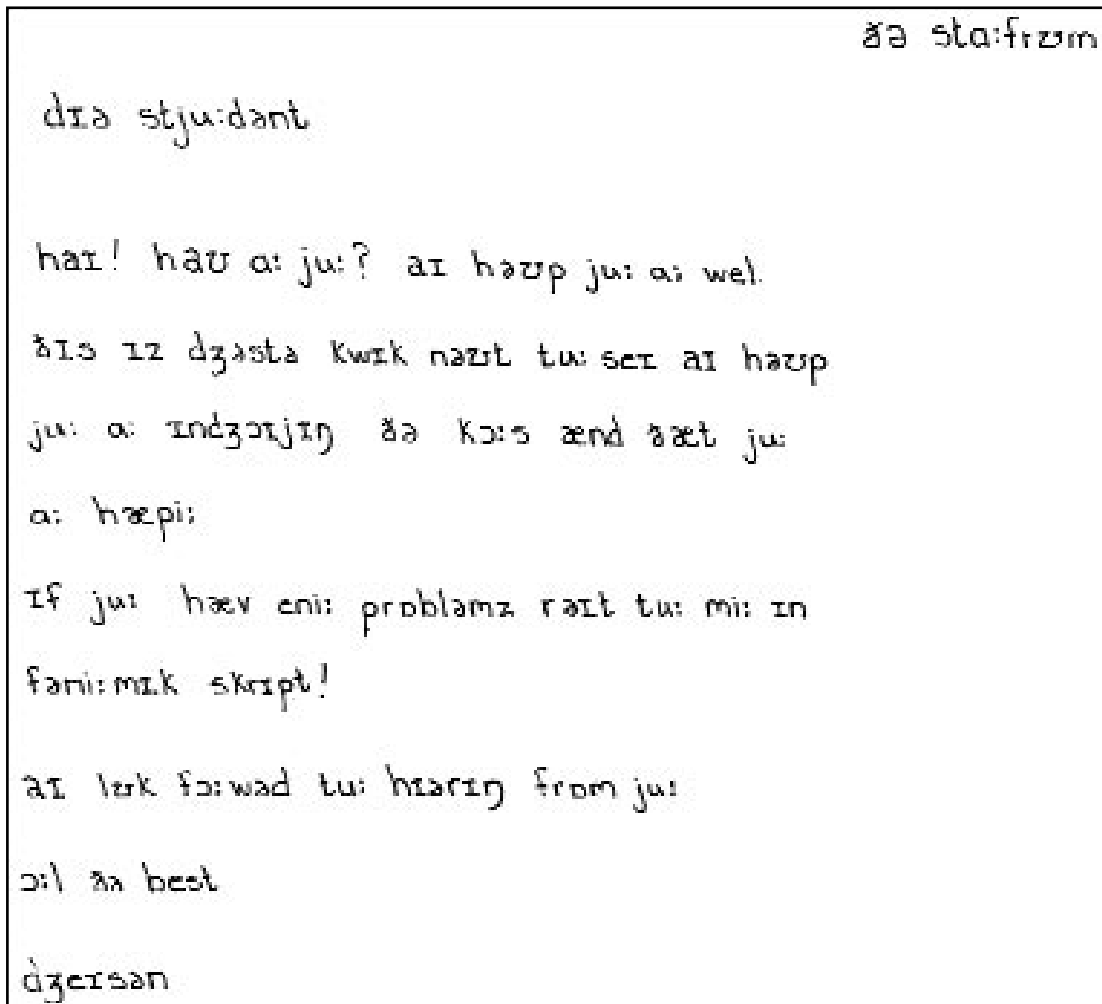 ðə stɑːfrʊm
dɪə stjuːdənt
haɪ! haʊ ɑː juː? aɪ həʊp juː ɑː wel.
ðɪs ɪz dʒəstə kwɪk nəʊt tuː seɪ aɪ həʊp
juː ɑː ɪndʒɔɪjɪŋ ðə kɔːs ænd ðæt juː
ɑː hæpiː
ɪf juː hæv eniː prɒbləmz raɪt tuː miː ɪn
fəniːmɪk skrɪpt!
aɪ lʊk fɔːwəd tuː hɪərɪŋ frɒm juː
ɔːl ðə best
dʒeɪsən